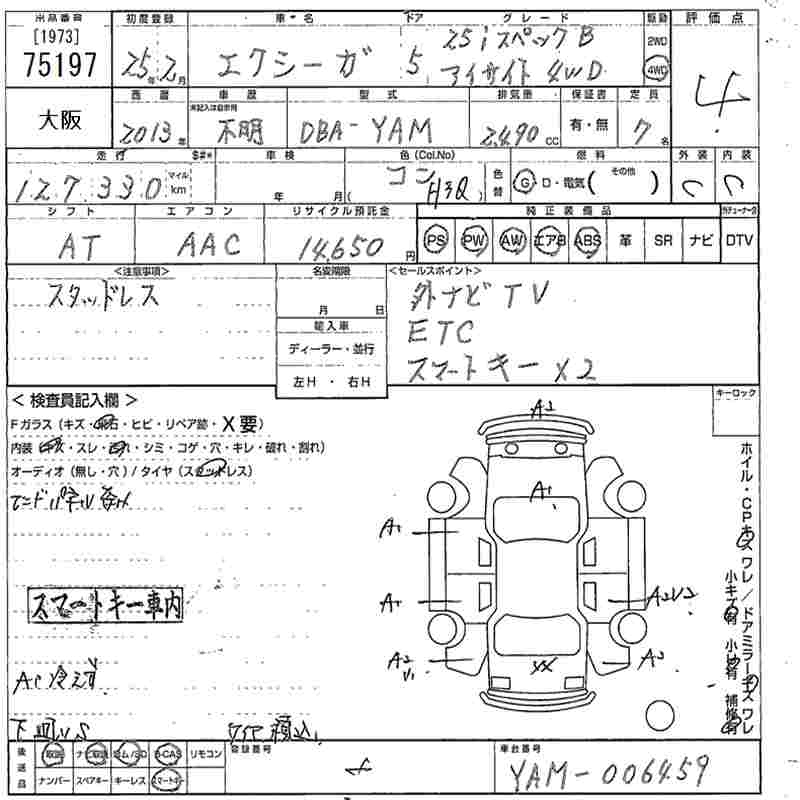 出品番号 初度登録 車・名 ドア グレード 駆動 評価点
[1973] 75197 25年2月 エクシーガ 5 25iスペックB アイサイト 4WD 2WD 4WD 4
大阪 西暦 車歴 型式 排気量 保証書 定員
未記入は自家用
2013年 不明 DBA-YAM 2,490 CC 有・無 7名
走行 $#* 車検 色(Col.No) 燃料 外装 内装
127,330 マイル km 年 月( コン H3Q) 色替 G D・電気( その他 ) C C
シフト エアコン リサイクル預託金 純正装備品
AT AAC 14,650円 PS PW AW エアB ABS 革 SR ナビ DTV
<注意事項> 名変期限 <セールスポイント>
スタッドレス 月 日 外ナビTV
輸入車 ETC
ディーラー・並行 スマートキー×2
左H・右H
<検査員記入欄> キーロック
Fガラス(キズ・飛石・ヒビ・リペア跡・X要)
内装(キズ・スレ・汚れ・シミ・コゲ・穴・キレ・破れ・割れ)
オーディオ(無し・穴)/タイヤ(スタッドレス)
A2
A1
A1
A1 A2U2
A2 XX A2
スマートキー車内
AC冷えず
下回りS
ホイル・CPキズワレ/ドアミラーキズワレ
小キズ有 小凹有 補修有
後送品 取説 ナビ取説 B-CAS リモコン 登録番号 車台番号
ナンバー スペアキー キーレス スマートキー YAM-006459